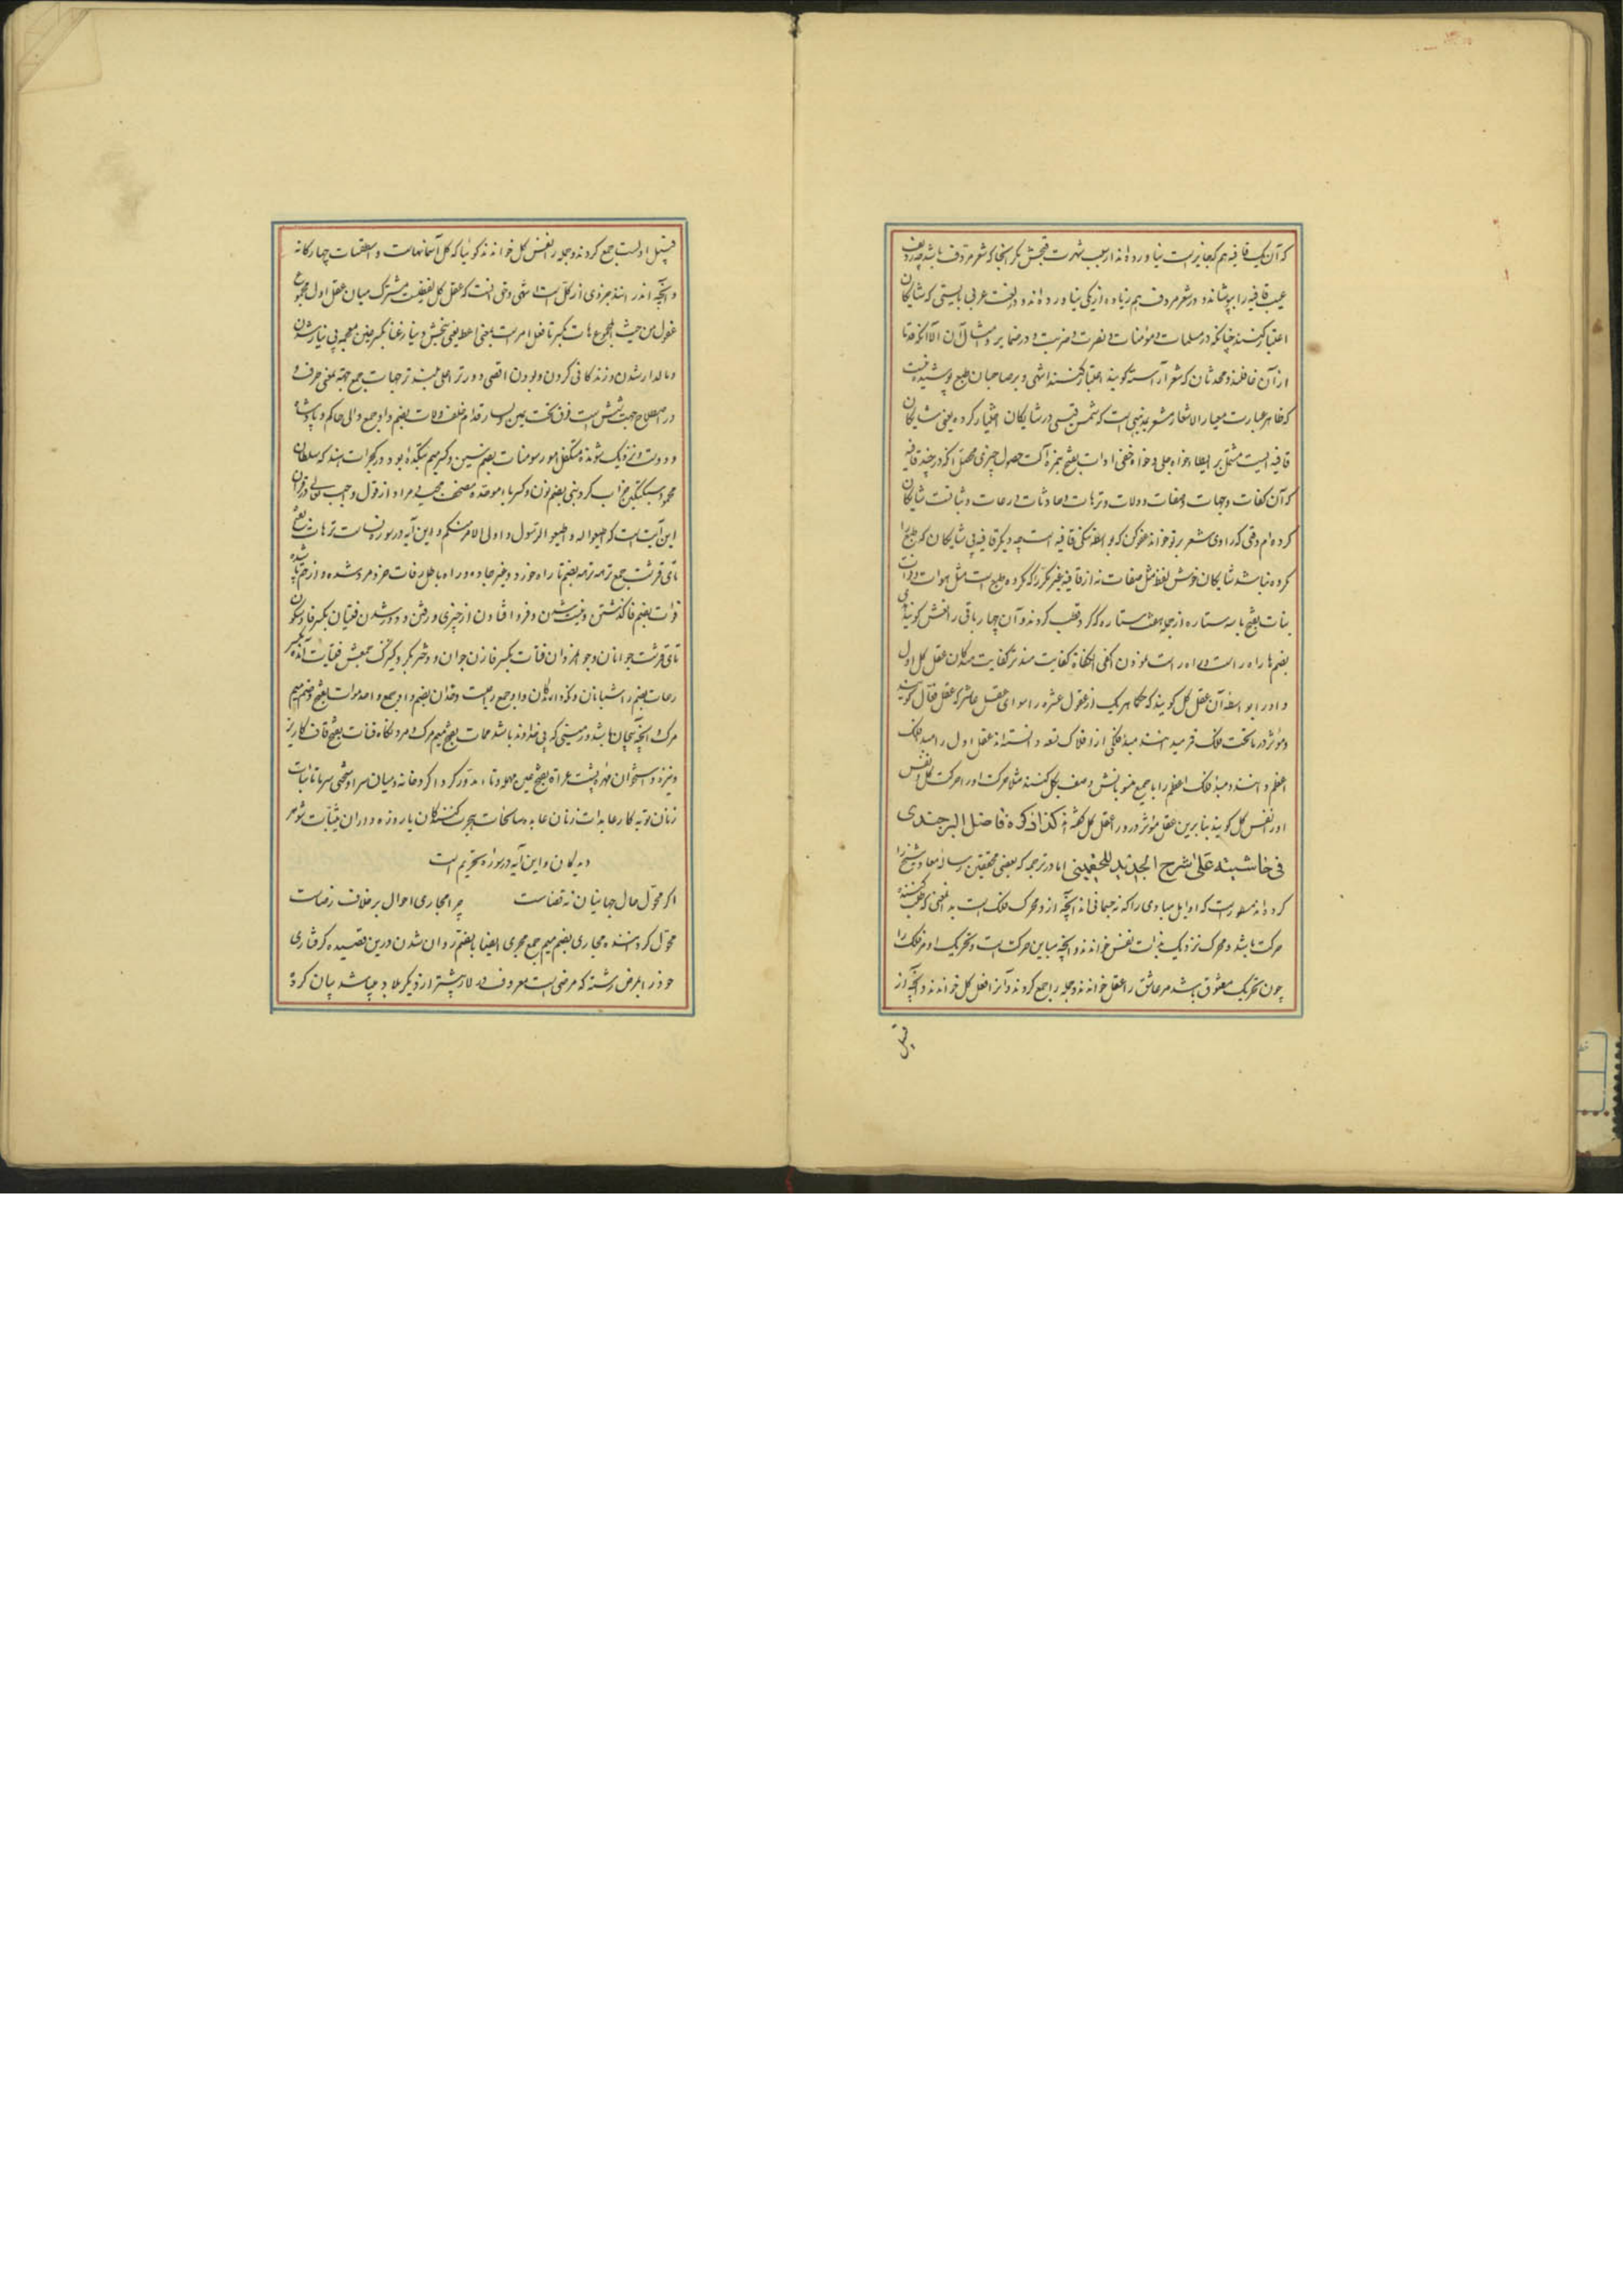 که آن یک قافیه هم که جایز است نیاورده اند از سبب شهرت قبحش مگر آنجا که شعر مردف باشد چه ردیف
عیب قافیه را بپوشاند و در شعر مردف هم زیاده از یکی نیاورده اند و در لغت عربی بایستی که شایکان
اعتبار کنند چنانکه در مسلمات و مؤمنات و نصرت و ضربت و در ضمایر و مثال آن الا آنکه قدما
از آن غافلند و محدثان که شعر آراسته کویند اعتبار کنند انتهی و بر صاحبان طبع پوشیده نیست
که ظاهر عبارت معیار الاشعار مشعر به است که شمس قیس در شایکان اختیار کرده یعنی شایکان
قافیه ایست مشتمل بر ایطاء خواه جلی و خواه خفی ادات بفتح همزه آلت حصول چیزی که در چند قافیه
که آن کفات و جهات و صفات و ولات و ترهات و حادثات و رعات و ثبات است شایکان
کرده ام وقتی که راوی شعر بر تو خواند عفو کن که بواسطه تنکی قافیه است چه دیکر قافیه بی شایکان که طبع را
کرده نباشد شایکان خوش لفظ مثل صفات نه از قافیه غیر مکرر که مکروه طبع است مثل موات و
بنات بفتح با سه ستاره از جمله هفت ستاره که کرد قطب کردند و آن چهار باقی را نعش کویند
بضم ها راه راست اکفی الکفاة کفایت مندتر کفایت مندکان عقل کل اول
و او را بواسطه آن عقل کل کویند که حکما هر یک از عقول عشره را سوای عقل عاشر که عقل فعال کویند
و مؤثر در ما تحت فلک قمر میدانند مبدأ فلکی از افلاک تسعه دانسته اند عقل اول را مبدأ فلک
اعظم دانند و مبدأ فلک اعظم را با جمیع منسوباتش وصف بکل کنند مثلا حرکت او را حرکت کل و نفس
او را نفس کل کویند بنابرین عقل مؤثر درو را عقل کل کفته اند کذا ذکره فاضل البرجندی
فی حاشیته علی شرح الجدید للچغمینی اما در ترجمه که بعضی محققین رساله معاد شیخ را
کرده اند مسطور است که اوایل مبادی را که نه جسمانی اند آنچه از و محرک فلک است به معنی که کننده
حرکت باشد و محرک نزدیک بذات نفس خوانند و آنچه مباین حرکت است و تحریک او مر فلک را
چون تحریک معشوق باشد مر عاشق را عقل خوانند و جمله را جمع کردند و آنرا عقل کل خواندند و آنچه از
قبیل
قبیل اولست جمع کردند و جمله را نفس کل خواندند کویا که کل آسمانهاست و اسطقسات چهارکانه
و آنچه اندر جزوی از کل است انتهی و حق آنست که عقل کل لفظیست مشترک میان عقل اول و مجموع
عقول من حیث المجموع هات بکسر تا فعل امر است بمعنی اعط یعنی بخش و بیار غنا بکسر غین معجمه بی نیاز شدن
و مالدار شدن و زندکانی کردن و بودن اقصی دورتر اعلی بلندتر جهات جمع جهة بمعنی طرف و
در اصطلاح جهت شش است فوق تحت یمین یسار قدام خلف ولات بضم واو جمع والی حاکم و پادشاه
و دوست و نزدیک شونده و متکفل امور سومنات بضم سین و کسر میم بتکده بود در کجرات هند که سلطان
محمود سبکتکین خراب کرد نبی بضم نون و کسر باء موحده مصحف مجید مراد از قول واجب تعالی در قرآن
این آیت است که اطیعوا الله و اطیعوا الرسول و اولی الامر منکم و این آیه در سوره نساست ترهات بفتح
تای قرشت جمع ترهه بضم تا راه خورد و غیر جاده و راه باطل رفات خرد و مرد شده و از هم پاشیده
فوات بضم فا کذشتن و نیست شدن و فرو افتادن از چیزی و رفتن و دور شدن فتیان بکسر فا و سکون
تای قرشت جوانان و جوانمردان فتات بفتح فا زن جوان و دختر بکر و کنیزک جمعش فتیات آمده
رعات بضم را شبانان و نکاه دارندکان
مرک و آنچه بیجان باشد و زمینی که بی خداوند باشد ممات بفتح میم مرک و مردنکاه قنات بفتح قاف کاریز
و نیزه و استخوان مهره پشت
زنان توبه کار عابدات زنان عابده سایحات هجرت کنندکان یا روزه داران ثیبات شوهر
دیدکان و این آیه در سوره تحریم است
اکر محول حال جهانیان نه قضاست چرا مجاری احوال بر خلاف رضاست
محول کرداننده مجاری بضم میم جمع مجری ایضا بالضم روان شدن درین قصیده کرفتاری
خود را بمرض رشته که مرضی است معروف و در لار پیشتر از دیکر بلاد میباشد بیان کرده